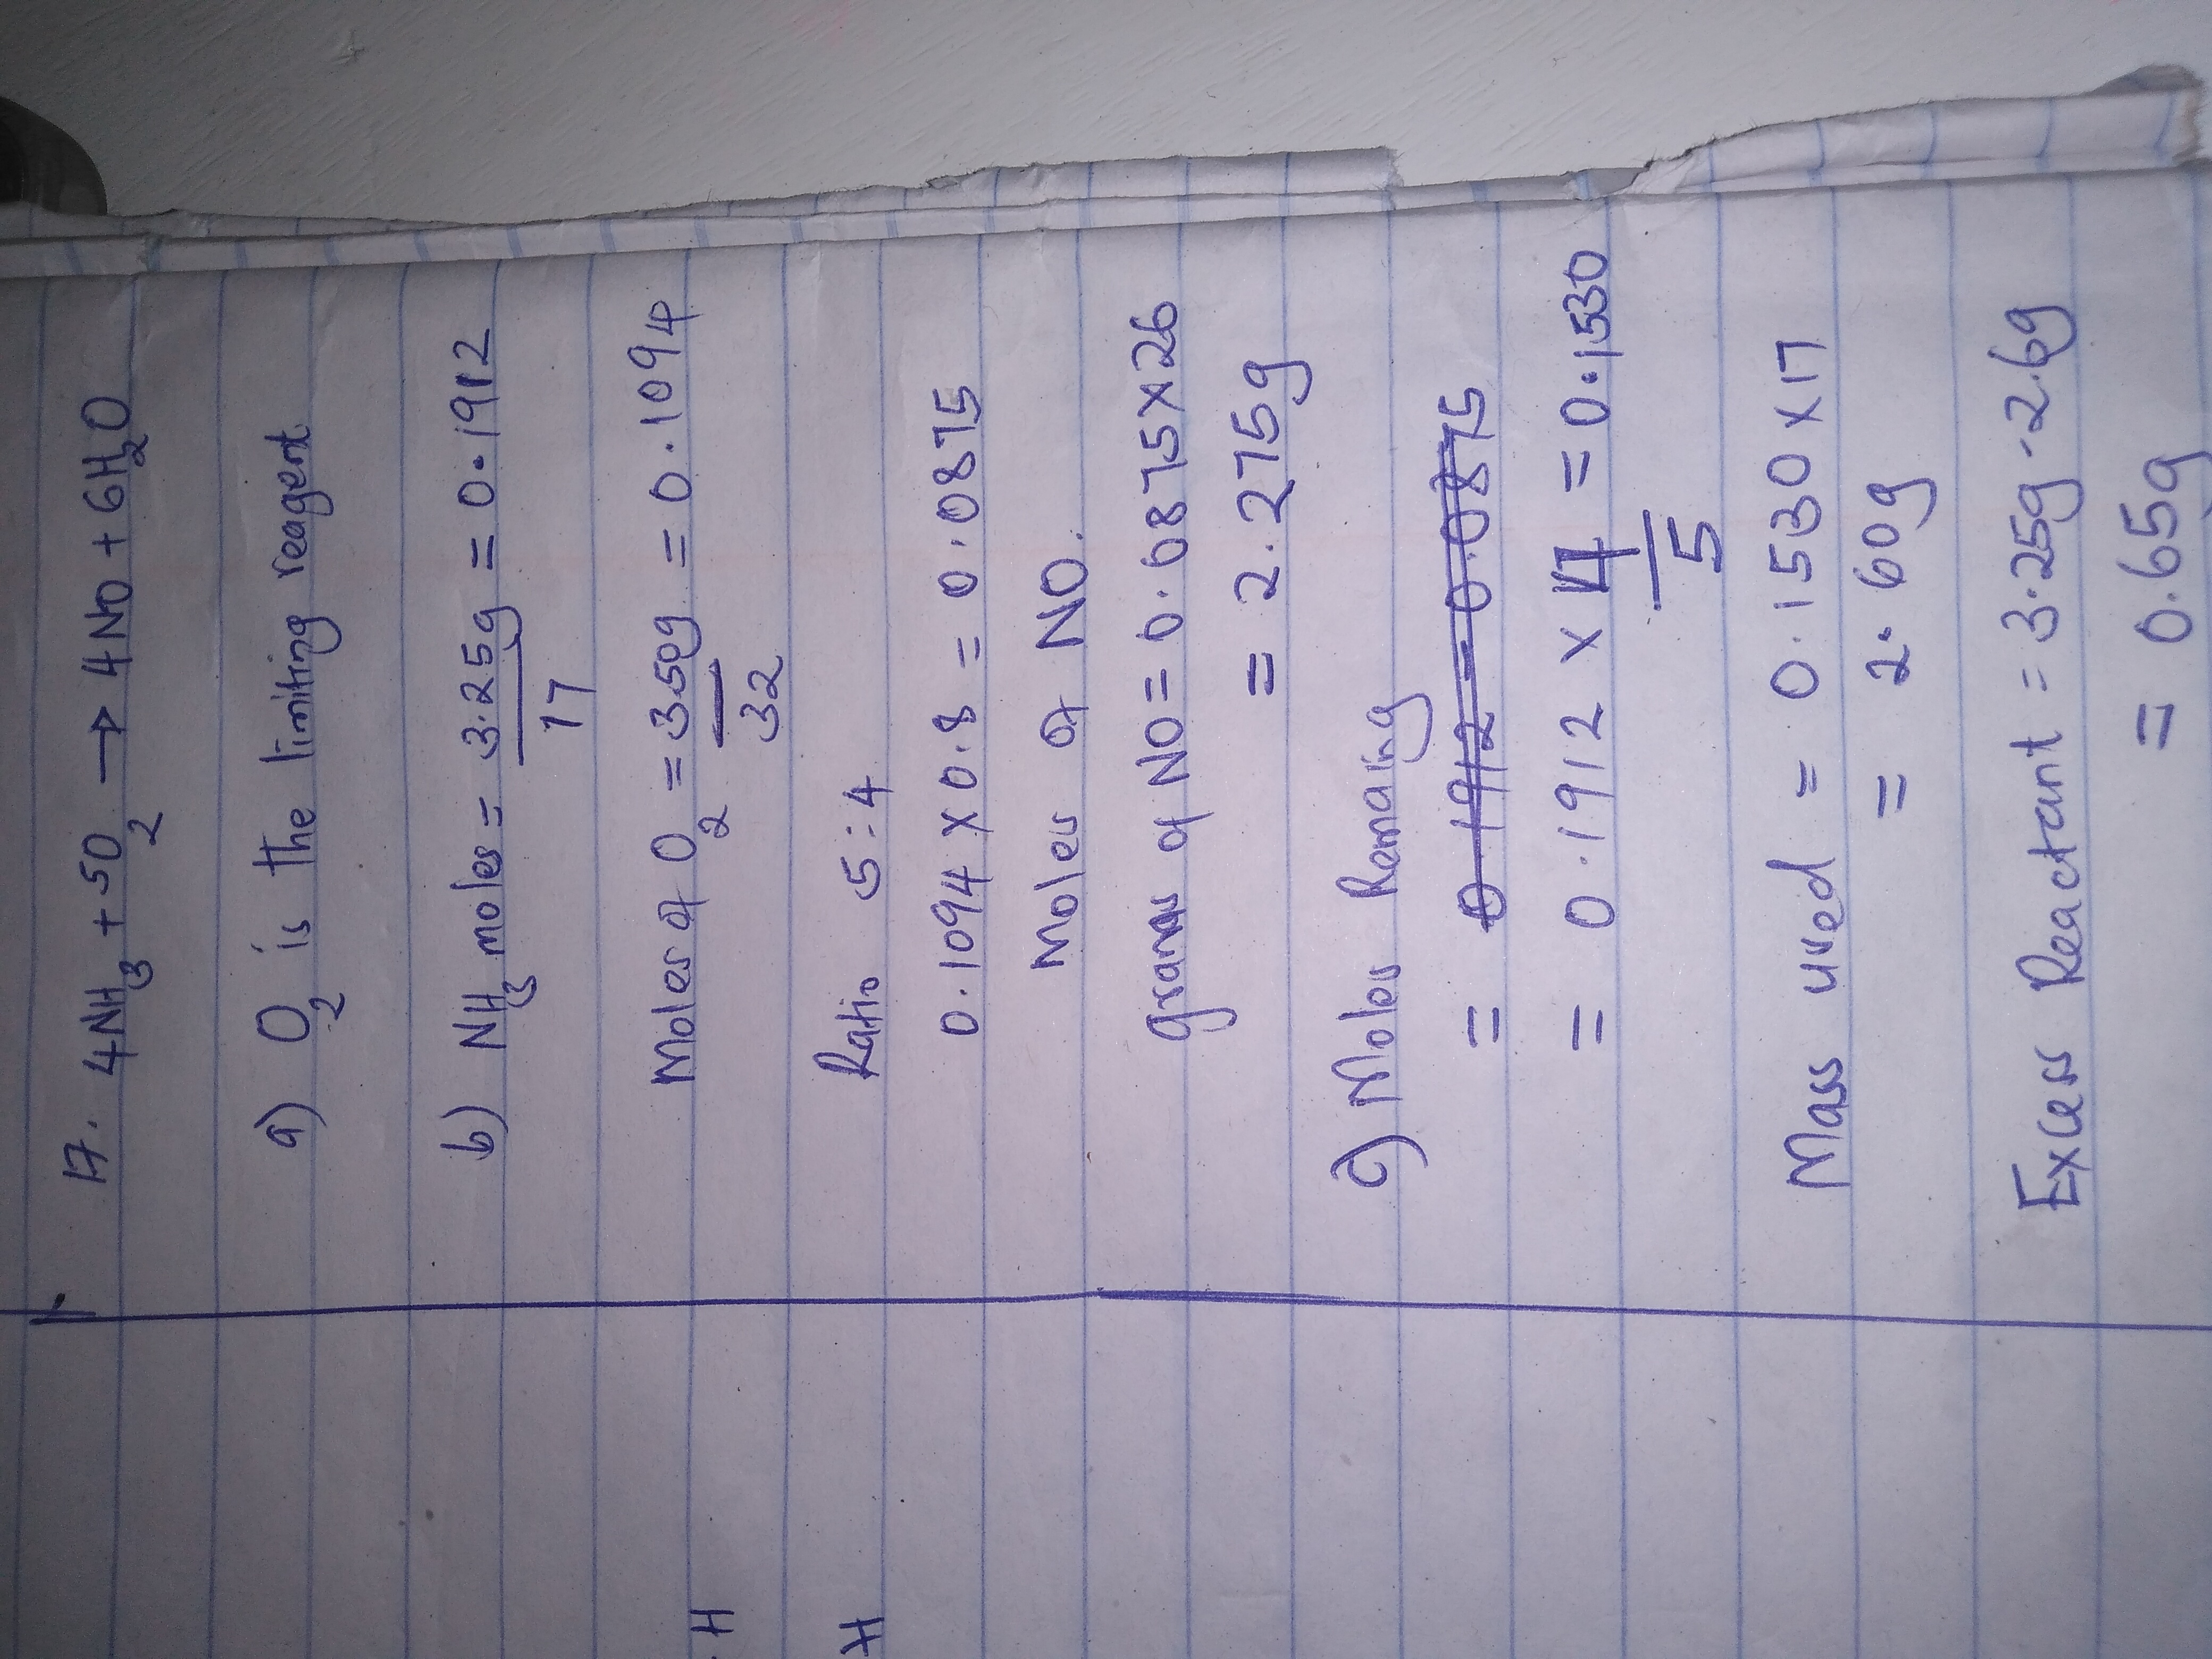 17. 4NH₃ + 5O₂ → 4NO + 6H₂O
a) O₂ is the limiting reagent
b) NH₃ moles = 3.25g = 0.1912
17
Moles of O₂ = 3.50g = 0.1094
32
Ratio 5:4
0.1094 × 0.8 = 0.0875
Moles of NO.
grams of NO = 0.0875 × 26
= 2.275g
c) Moles Remaing
= 0.1912 - 0.0875
= 0.1912 × 4 = 0.1530
5
Mass used = 0.1530 × 17
= 2.60g
Excess Reactant = 3.25g - 2.6g
= 0.65g
H
H